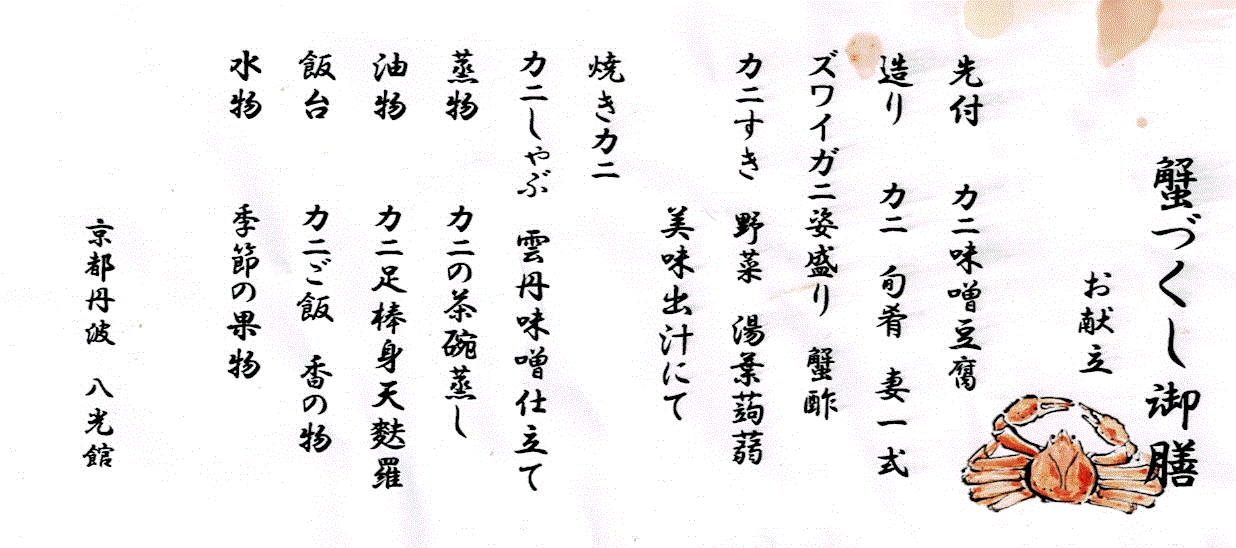 蟹づくし御膳
お献立
先付 カニ味噌豆腐
造り カニ 旬肴 妻一式
ズワイガニ姿盛り 蟹酢
カニすき 野菜 湯葉蒟蒻
美味出汁にて
焼きカニ
カニしゃぶ 雲丹味噌仕立て
蒸物 カニの茶碗蒸し
油物 カニ足棒身天麩羅
飯台 カニご飯 香の物
水物 季節の果物
京都丹波 八光館